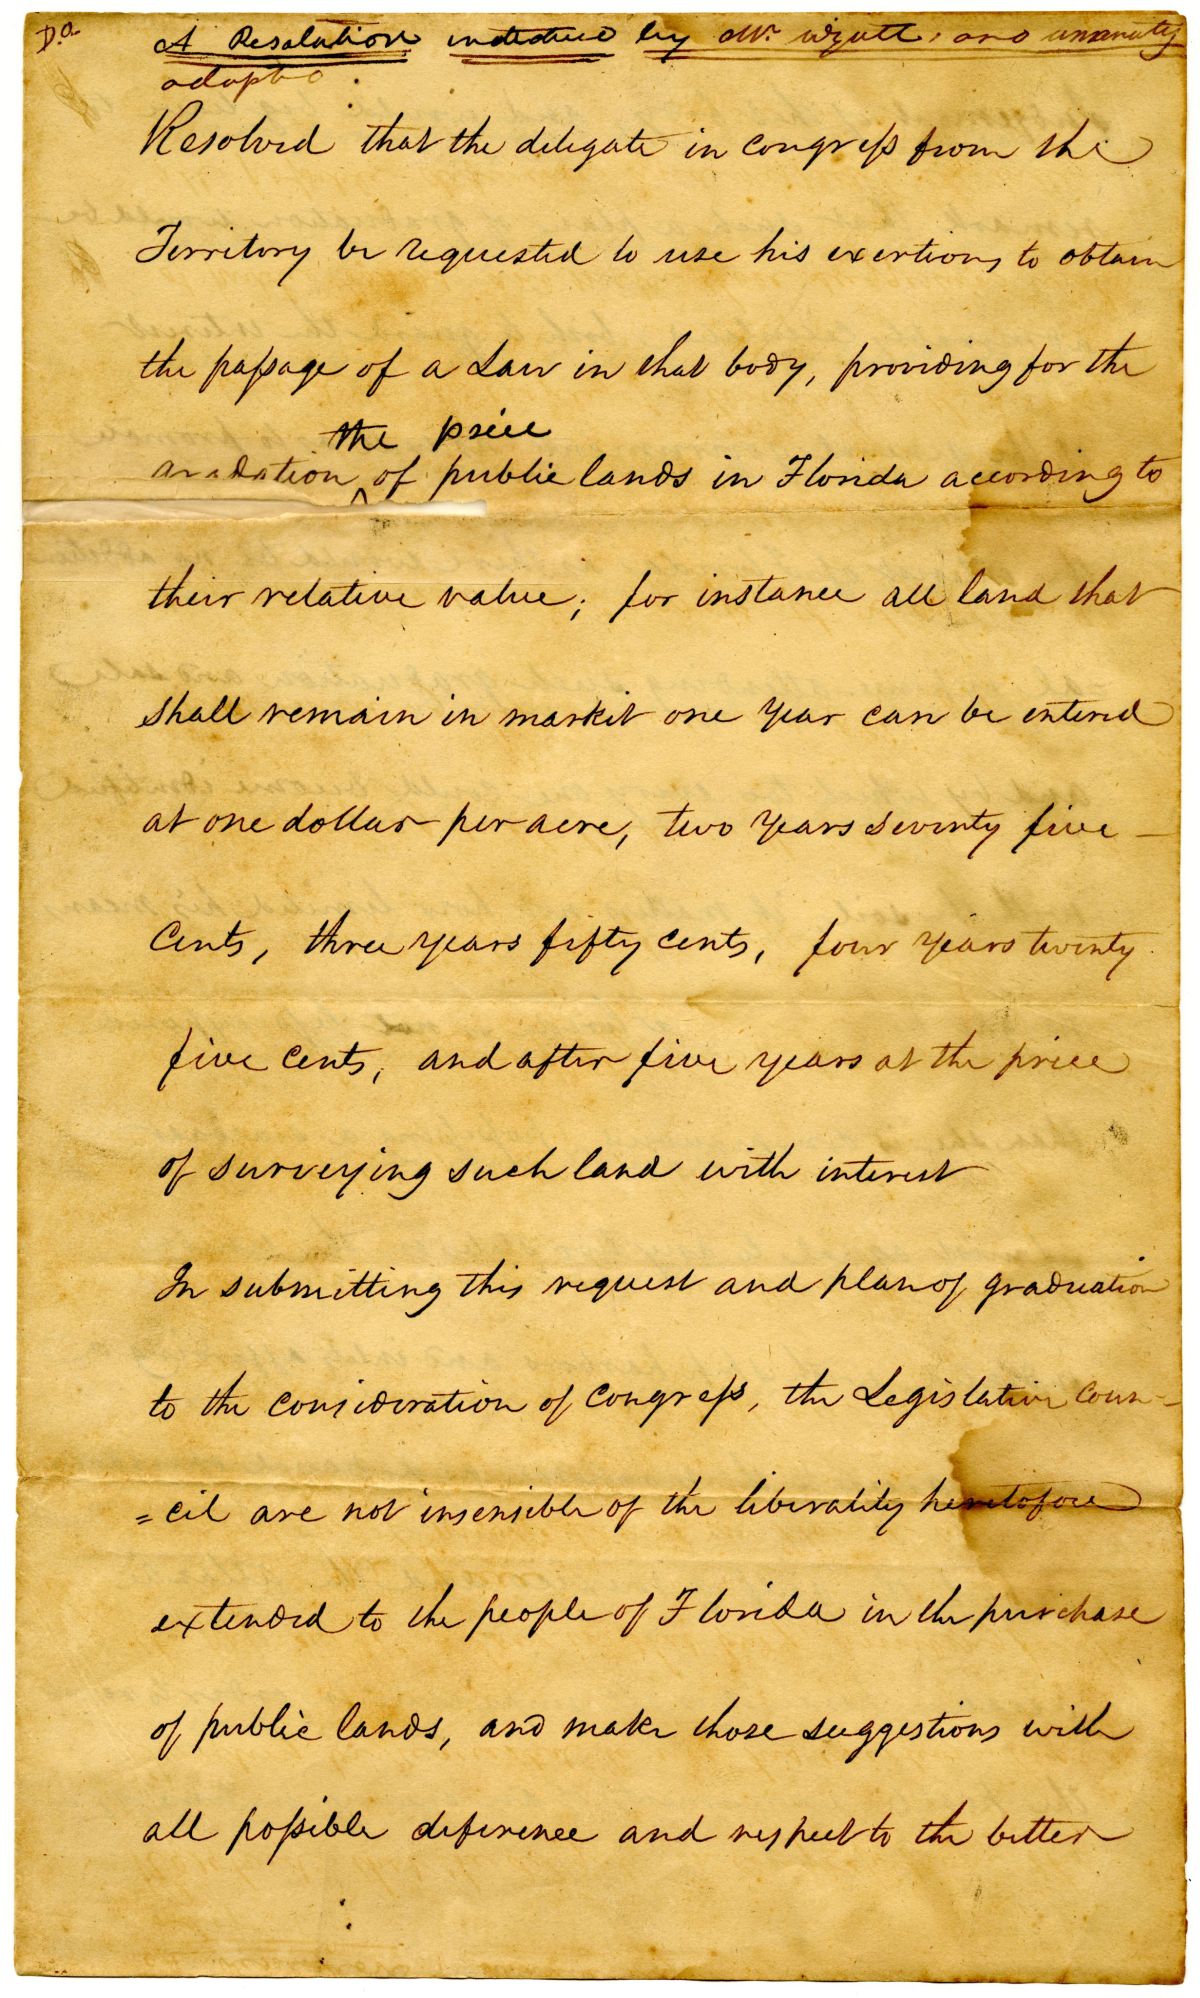 D.O.
A Resolution introduced by Mr. Wyatt, and unanimously
adopted.
Resolved that the delegate in congress from the
Territory be requested to use his exertions to obtain
the passage of a Law in that body, providing for the
the price
gradation of public lands in Florida according to
their relative value; for instance all land that
shall remain in markit one year can be entered
at one dollar per acre, two years seventy five
Cents, three years fifty cents, four years twenty
five cents, and after five years at the price
of surveying such land with interest
In submitting this request and plan of graduation
to the consideration of Congress, the Legislative Coun-
=cil are not insensible of the liberality heretofore
extended to the people of Florida in the purchase
of public lands, and make those suggestions with
all possible deference and respect to the better